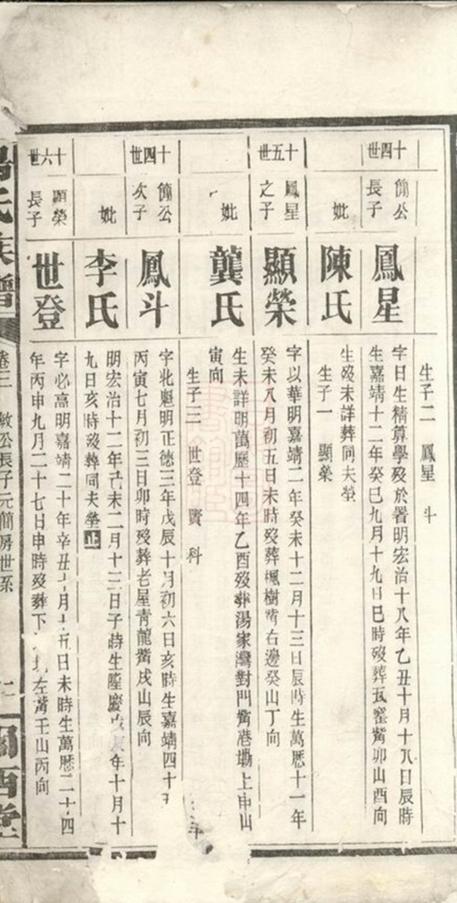 生子二 鳳星 斗
十四世
簡公長子
鳳星
字日生精算學歿於署明宏治十八年乙丑十月十八日辰時
生嘉靖十二年癸巳九月十九日巳時歿葬瓦窰觜卯山酉向
妣
陳氏
生歿未詳葬同夫塋
生子一 顯榮
十五世
鳳星之子
顯榮
字以華明嘉靖二年癸未十二月十三日辰時生萬歷十一年
癸未八月初五日未時歿葬楓樹觜右邊癸山丁向
妣
龔氏
生未詳明萬歷十四年乙酉歿葬湯家灣對門觜港塝上申山
寅向
生子三 世登 賢 科
十四世
簡公次子
鳳斗
字北魁明正德三年戊辰十月初六日亥時生嘉靖四十
丙寅七月初三日卯時歿葬老屋青龍觜戌山辰向
妣
李氏
明宏治十二年己未二月十三日子時生隆慶戊辰年十月十
九日亥時歿葬同夫塋止
十六世
顯榮長子
世登
字必高明嘉靖二十年辛丑十月十五日未時生萬歷二十四
年丙申九月二十七日申時歿葬下 左觜壬山丙向
氏族譜
卷三 敏公長子元簡房世系
西堂